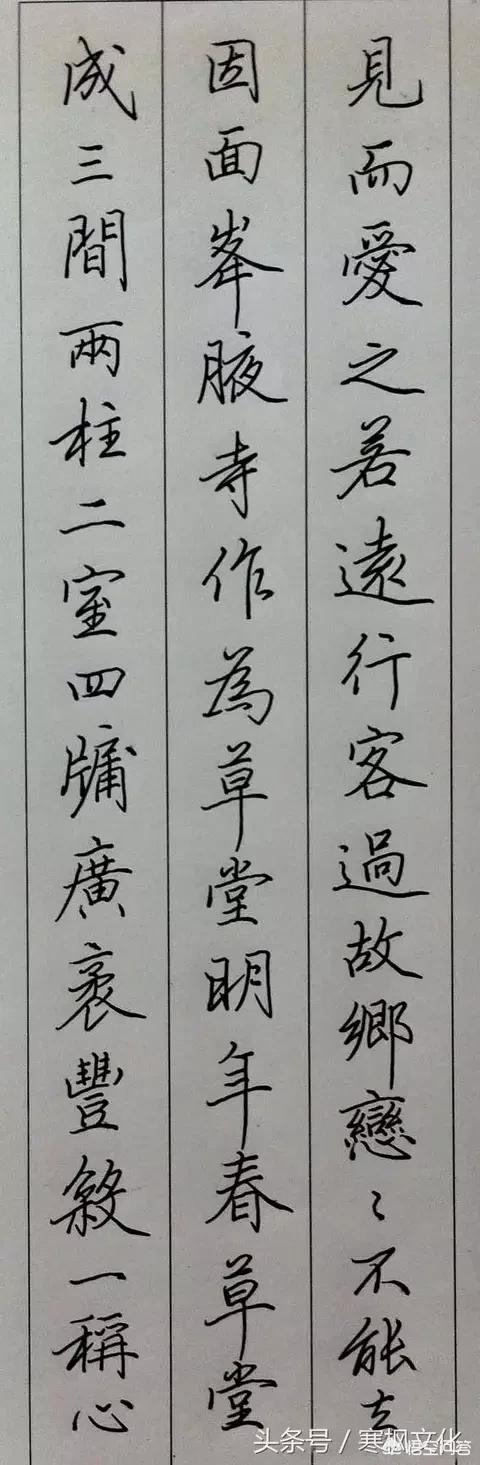 見而愛之若遠行客過故鄉戀〻不能去
因面峯腋寺作為草堂明年春草堂
成三間兩柱二室四牖廣袤豐殺一稱心
头条号／寒枫文化
悟空问答